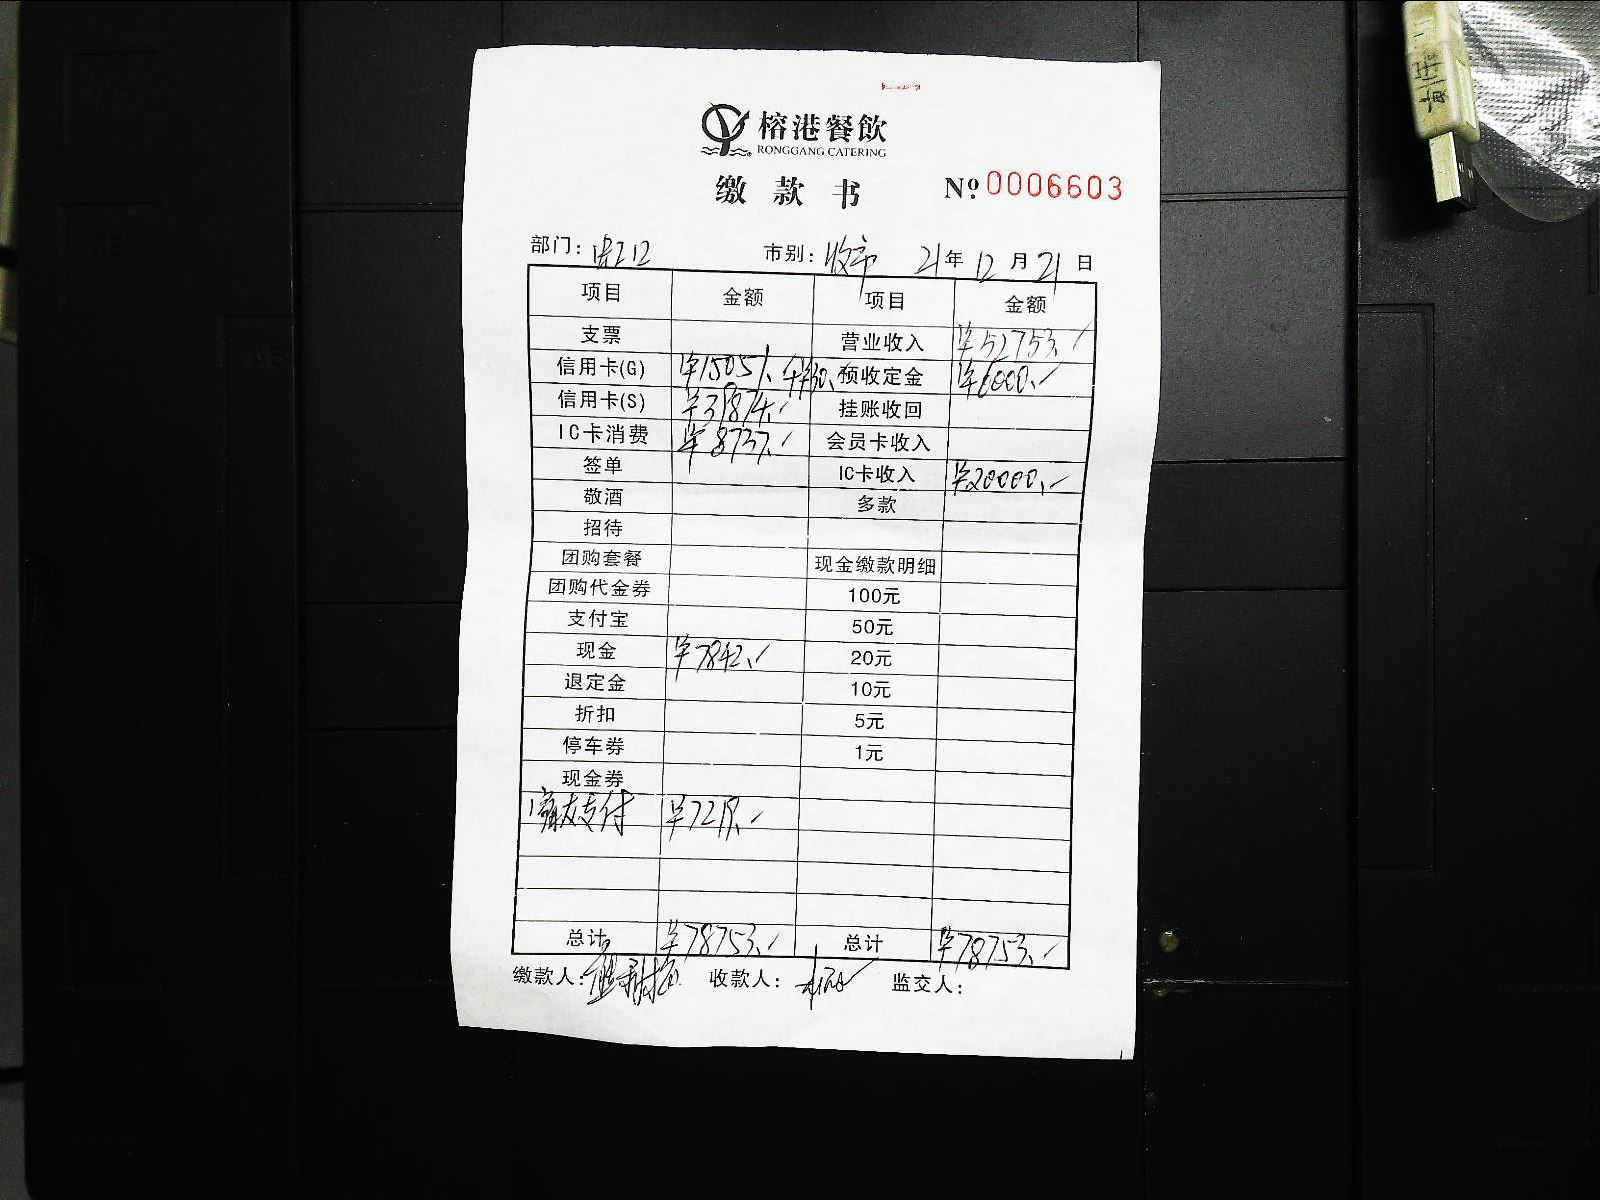 榕港餐飲
RONGGANG CATERING
缴款书 Nº 0006603
部门: 市别: 收市 21年12月21日
项目 金额 项目 金额
支票 营业收入 ¥52753.
信用卡(G) ¥15051. ¥30. 预收定金 ¥6000.
信用卡(S) ¥39874. 挂账收回
IC卡消费 ¥8737. 会员卡收入
签单 IC卡收入 ¥20000.
敬酒 多款
招待
团购套餐 现金缴款明细
团购代金券 100元
支付宝 50元
现金 ¥7842. 20元
退定金 10元
折扣 5元
停车券 1元
现金券
支付 ¥7219.
总计 ¥78753. 总计 ¥78753.
缴款人: 收款人: 监交人: